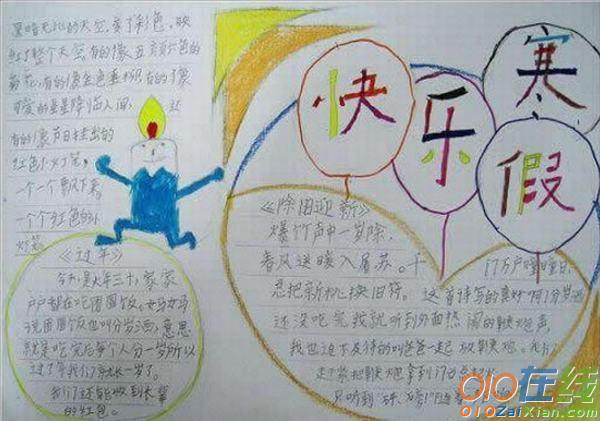 黑暗无比的天空,变了彩色。映
红了整个天空有的像五颜六色的
菊花,有的像金色垂柳,有的像
可爱的星星降临人间,还
有的像
红色小灯笼,
一个一个飘下来
一个个红色的小
灯笼
《过年》
今天是大年三十,家家
户户都在吃团圆饭。妈妈
说团圆饭也叫分岁酒,意思
就是吃完后每个人分一岁所以
过了年我们又长一岁了。
我们还能收到长辈
的红包。
快
乐
寒
假
《除旧迎新》
爆竹声中一岁除,
春风送暖入屠苏。千
门万户曈曈日,
总把新桃换旧符。这首诗写的真好
还没吃完我就听到外面热闹的鞭炮声,
我也迫不及待的叫爸爸一起放鞭炮。我们
赶紧把鞭炮拿到门口
只听到
010在线
010ZaiXian.com